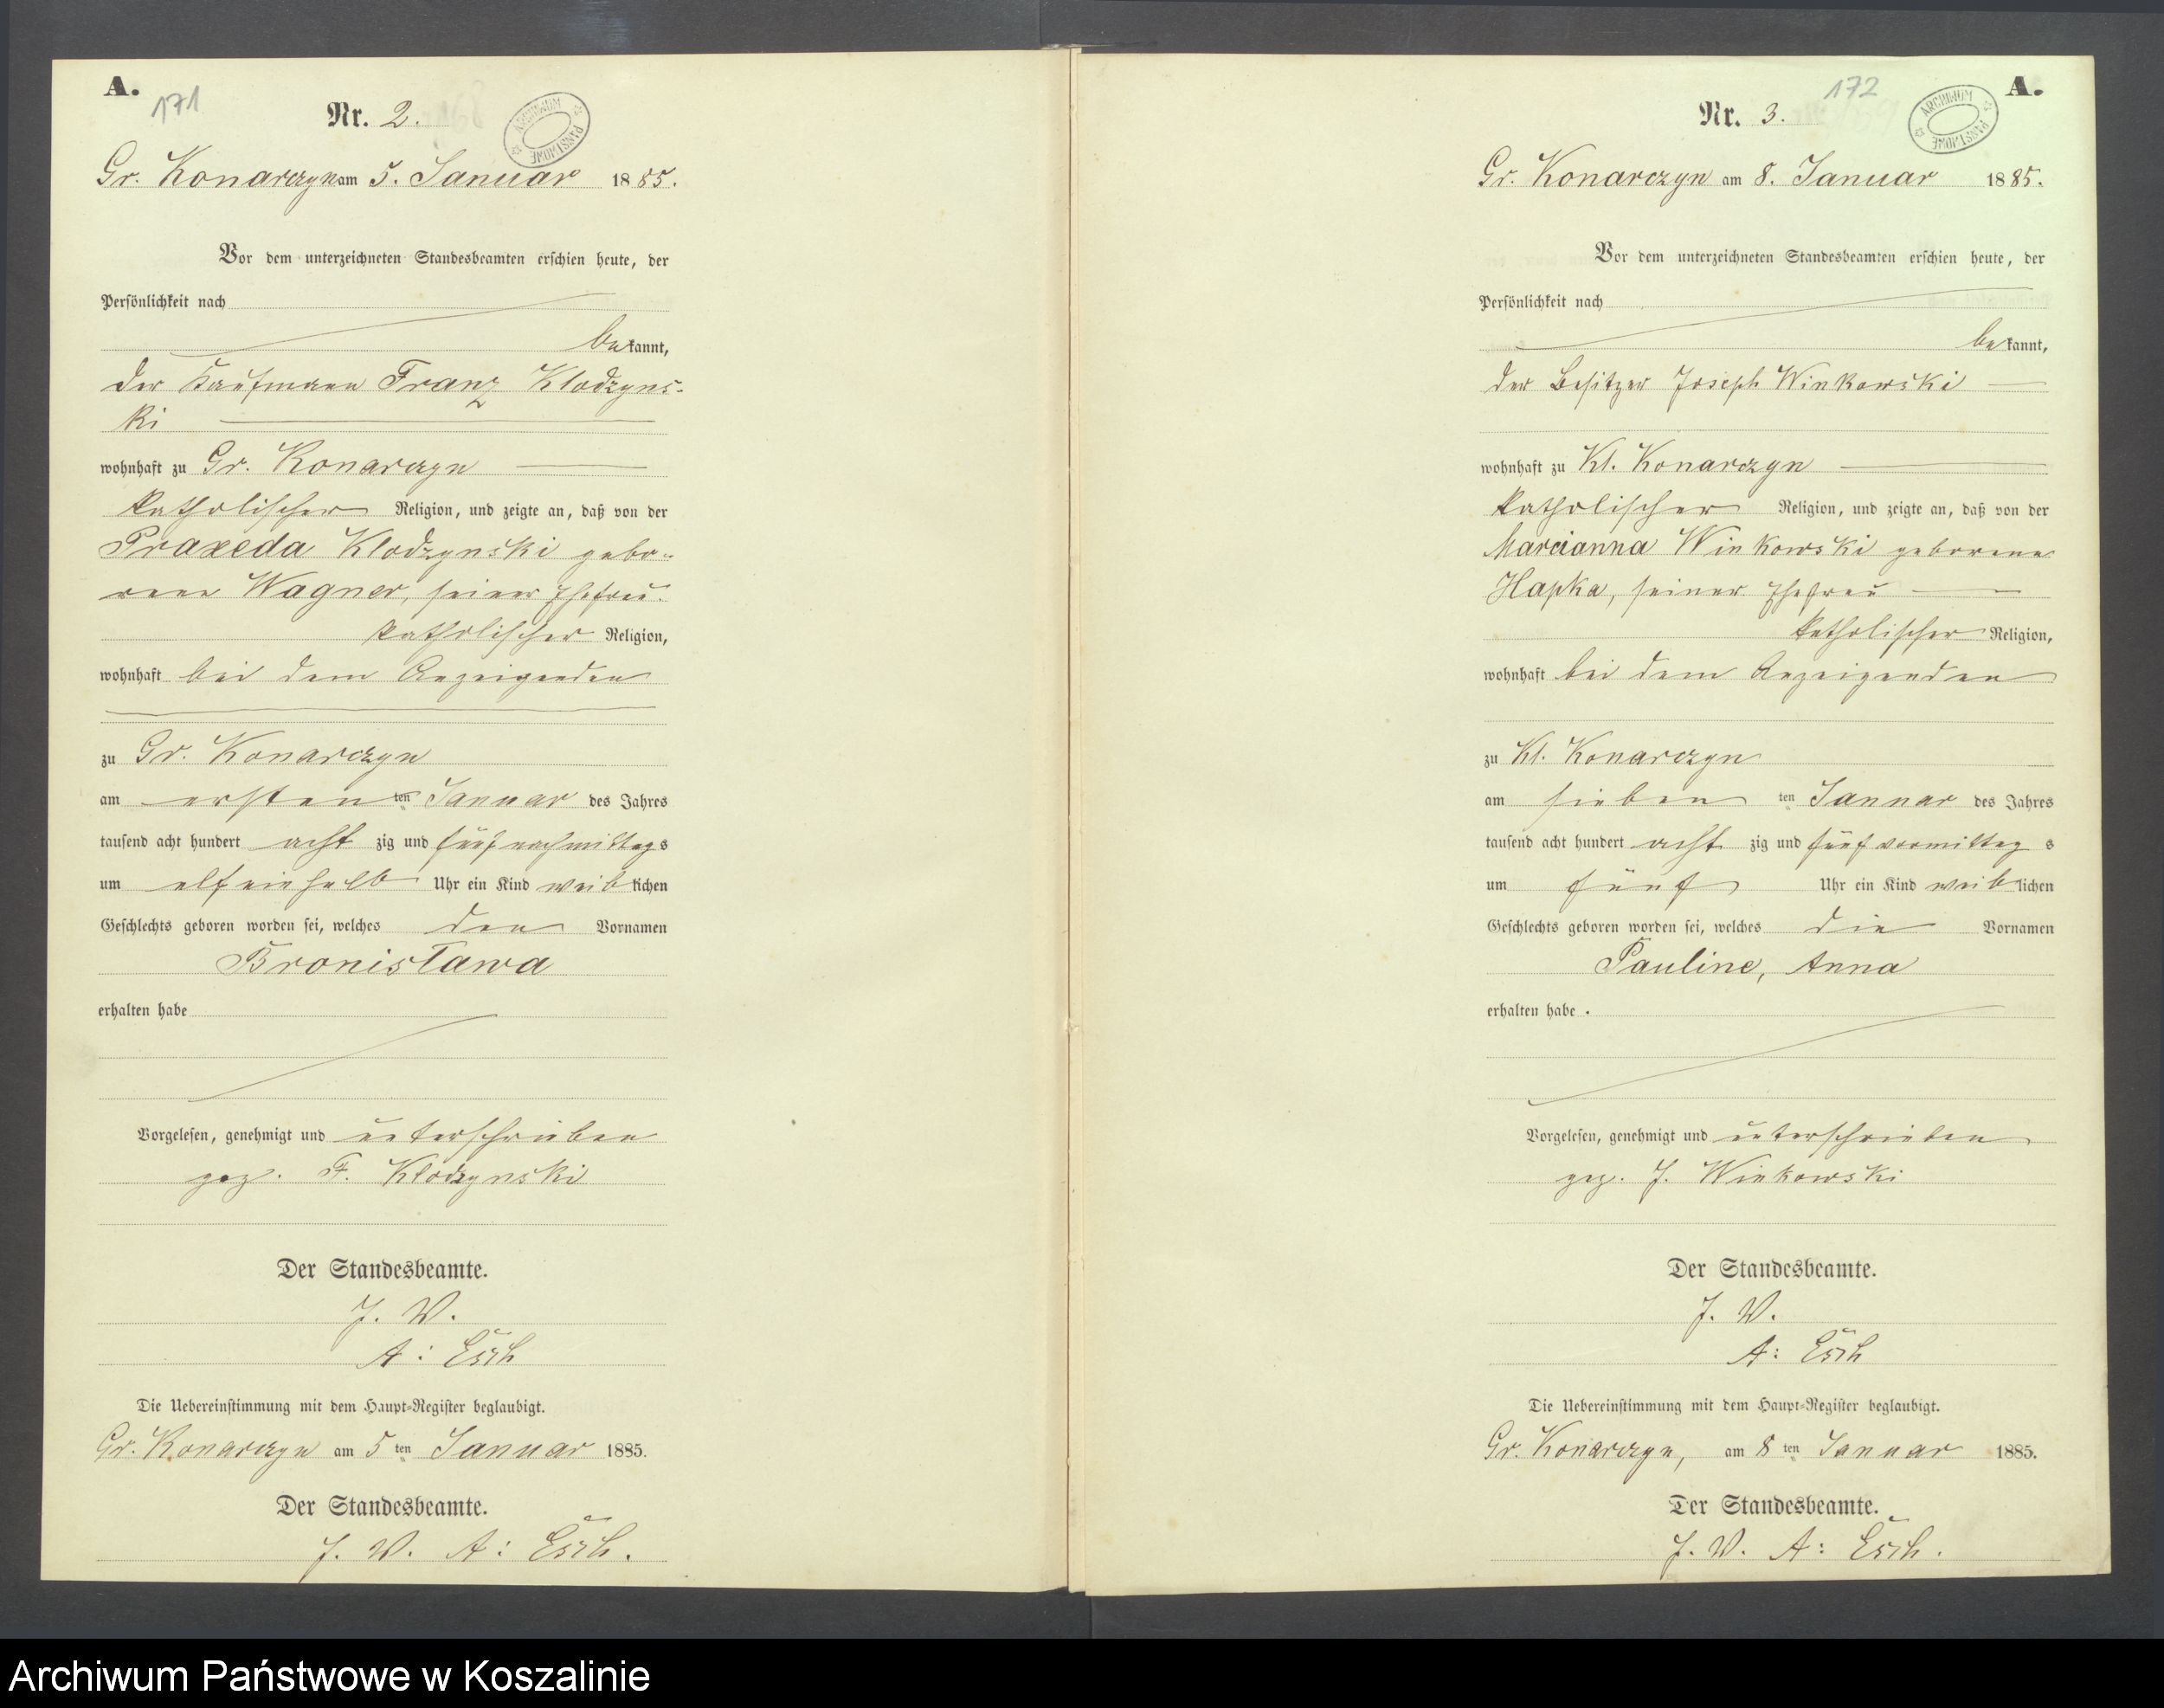 A.
171
Nr. 2.
ARCHIWUM PAŃSTWOWE
Gr. Konarczyn am 5. Januar 1885.
Vor dem unterzeichneten Standesbeamten erschien heute, der
Persönlichkeit nach
bekannt,
der Kaufmann Franz Klodzyns-
ki
wohnhaft zu Gr. Konarczyn
katholischer Religion, und zeigte an, daß von der
Praxeda Klodzynski gebo-
rene Wagner, seiner Ehefrau
katholischer Religion,
wohnhaft bei dem Anzeigenden
zu Gr. Konarczyn
am ersten ten Januar des Jahres
tausend acht hundert acht zig und fünf nachmittags
um elfeinhalb Uhr ein Kind weiblichen
Geschlechts geboren worden sei, welches den Vornamen
Bronisława
erhalten habe
Vorgelesen, genehmigt und unterschrieben
gez. F. Klodzynski
Der Standesbeamte.
J. V.
A: Esch
Die Uebereinstimmung mit dem Haupt-Register beglaubigt.
Gr. Konarczyn am 5 ten Januar 1885.
Der Standesbeamte.
J. V. A: Esch.
172
A.
Nr. 3.
ARCHIWUM PAŃSTWOWE
Gr. Konarczyn am 8. Januar 1885.
Vor dem unterzeichneten Standesbeamten erschien heute, der
Persönlichkeit nach
bekannt,
der Besitzer Joseph Winkowski
wohnhaft zu Kl. Konarczyn
katholischer Religion, und zeigte an, daß von der
Marcianna Winkowski geborene
Hapka, seiner Ehefrau
katholischer Religion,
wohnhaft bei dem Anzeigenden
zu Kl. Konarczyn
am sieben ten Januar des Jahres
tausend acht hundert acht zig und fünf vormittag s
um fünf Uhr ein Kind weiblichen
Geschlechts geboren worden sei, welches die Vornamen
Pauline, Anna
erhalten habe.
Vorgelesen, genehmigt und unterschrieben
gez. J. Winkowski
Der Standesbeamte.
J. V.
A: Esch
Die Uebereinstimmung mit dem Haupt-Register beglaubigt.
Gr. Konarczyn, am 8 ten Januar 1885.
Der Standesbeamte.
J. V. A: Esch.
Archiwum Państwowe w Koszalinie